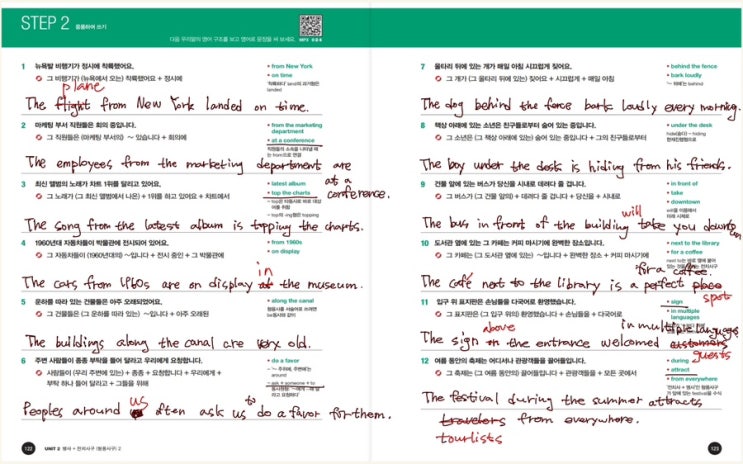 STEP 2 응용하여 쓰기
다음 우리말의 영어 구조를 보고 영어로 문장을 써 보세요.
1 뉴욕발 비행기가 정시에 착륙했어요.
그 비행기가 (뉴욕에서 오는) 착륙했어요 + 정시에
• from New York
• on time
plane
The flight from New York landed on time.
2 마케팅 부서 직원들은 회의 중입니다.
그 직원들은 (마케팅 부서의) ~ 있습니다 + 회의에
• from the marketing department
• at a conference
The employees from the marketing department are
at a conference.
3 최신 앨범의 노래가 차트 1위를 달리고 있어요.
그 노래가 (그 최신 앨범에서 나온) + 1위를 하고 있어요 + 차트에서
• latest album
• top the charts
The song from the latest album is topping the charts.
4 1960년대 자동차들이 박물관에 전시되어 있어요.
그 자동차들이 (1960년대의) ~입니다 + 전시 중인 + 그 박물관에
• from 1960s
• on display
in
The cars from 1960s are on display at the museum.
5 운하를 따라 있는 건물들은 아주 오래되었어요.
그 건물들은 (그 운하를 따라 있는) ~입니다 + 아주 오래된
• along the canal
The buildings along the canal are very old.
6 주변 사람들이 종종 부탁을 들어 달라고 우리에게 요청합니다.
사람들이 (우리 주변에 있는) + 종종 + 요청합니다 + 우리에게 +
부탁 하나 들어 달라고 + 그들을 위해
• do a favor
us to
Peoples around often ask us do a favor for them.
122 UNIT 2 명사 + 전치사구 (형용사구) 2
7 울타리 뒤에 있는 개가 매일 아침 시끄럽게 짖어요.
그 개가 (그 울타리 뒤에 있는) 짖어요 + 시끄럽게 + 매일 아침
• behind the fence
• bark loudly
The dog behind the fence bark loudly every morning.
8 책상 아래에 있는 소년은 친구들로부터 숨어 있는 중입니다.
그 소년은 (그 책상 아래에 있는) 숨어 있는 중입니다 + 그의 친구들로부터
• under the desk
The boy under the desk is hiding from his friends.
9 건물 앞에 있는 버스가 당신을 시내로 데려다 줄 겁니다.
그 버스가 (그 건물 앞의) + 데려다 줄 겁니다 + 당신을 + 시내로
• in front of
• take
• downtown
will
The bus in front of the building take you downtown
10 도서관 옆에 있는 그 카페는 커피 마시기에 완벽한 장소입니다.
그 카페는 (그 도서관 옆에 있는) ~입니다 + 완벽한 장소 + 커피 마시기에
• next to the library
• for a coffee
for a coffee.
The café next to the library is a perfect place
spot
11 입구 위 표지판은 손님들을 다국어로 환영했습니다.
그 표지판은 (그 입구 위의) 환영했습니다 + 손님들을 + 다국어로
• sign
• in multiple languages
above in multiple languages
The sign on the entrance welcomed customers
guests
12 여름 동안의 축제는 어디서나 관광객들을 끌어들입니다.
그 축제는 (그 여름 동안의) 끌어들입니다 + 관광객들을 + 모든 곳에서
• during
• attract
• from everywhere
The festival during the summer attracts
travelers from everywhere.
tourlists
123